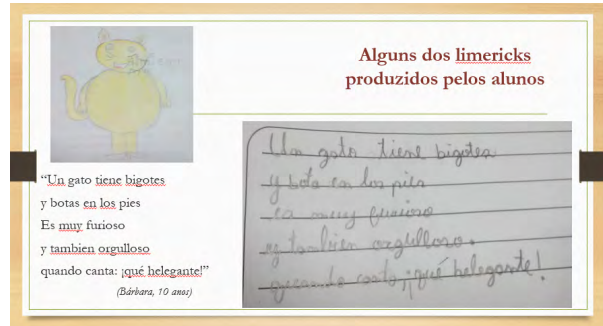 Alguns dos limericks
produzidos pelos alunos
“Un gato tiene bigotes
y botas en los pies
Es muy furioso
y tambien orgulloso
quando canta: ¡qué helegante!”
(Bárbara, 10 anos)
Un gato tiene bigotes
y bota en los pies
es muy furioso
y tambien orgulloso.
quando canta, ¡qué helegante!